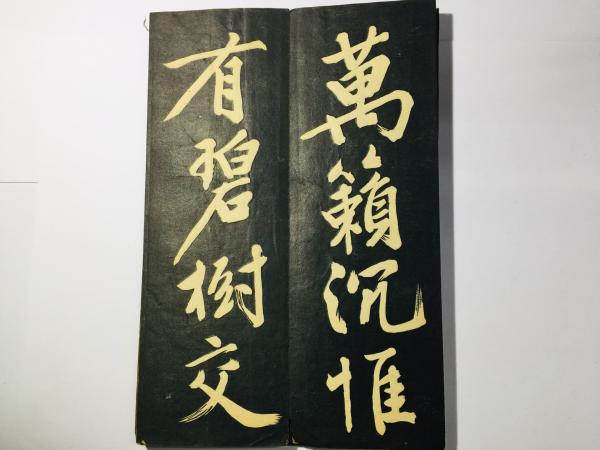 萬籟沉惟
有碧樹交